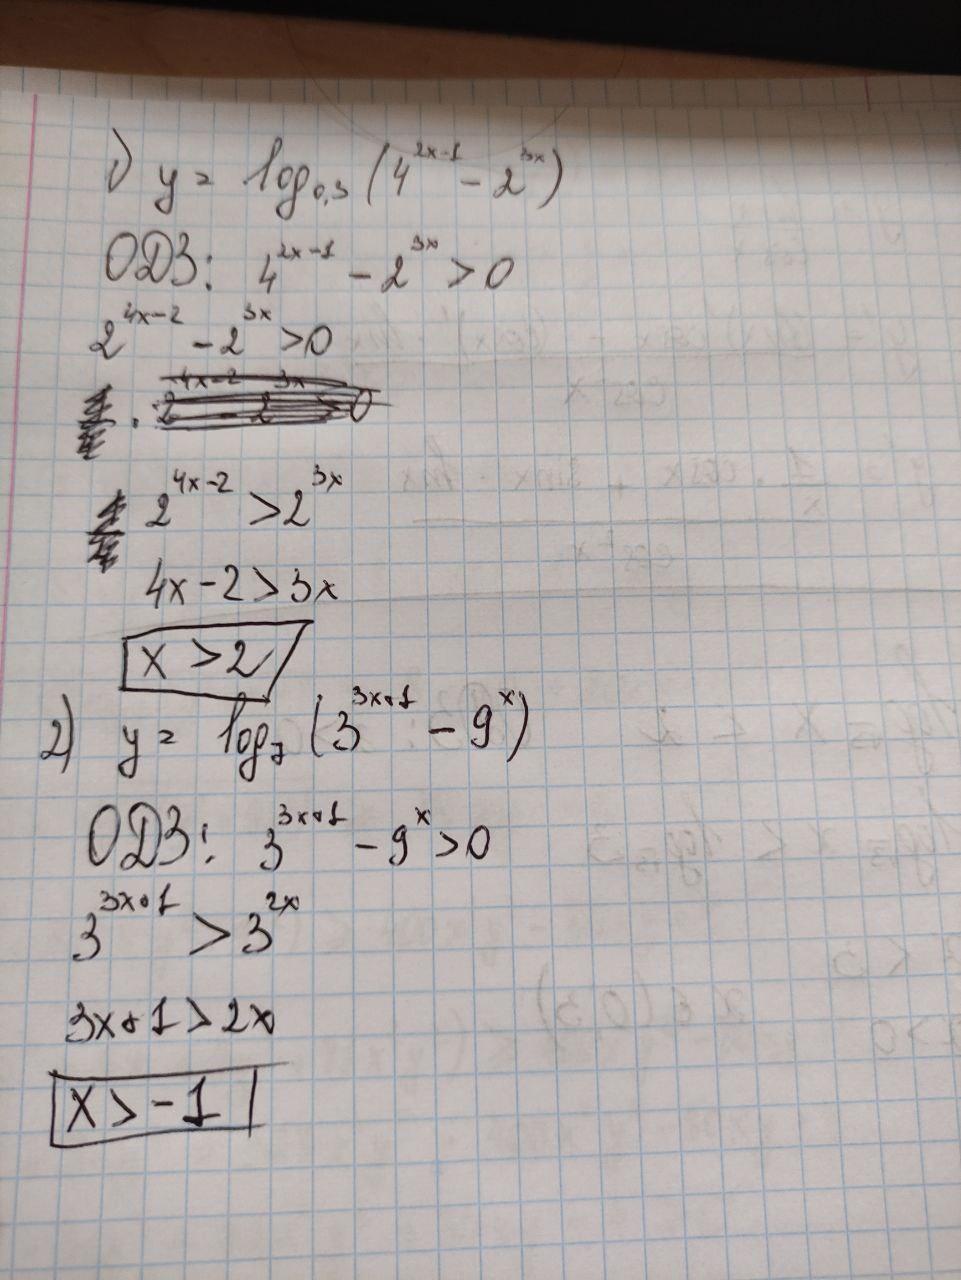 1) y = log₀,₃ (4^(2x-1) - 2^(3x))
ОДЗ: 4^(2x-1) - 2^(3x) > 0
2^(4x-2) - 2^(3x) > 0
2^(4x-2) > 2^(3x)
4x - 2 > 3x
x > 2
2) y = log₇ (3^(3x+1) - 9^x)
ОДЗ: 3^(3x+1) - 9^x > 0
3^(3x+1) > 3^(2x)
3x + 1 > 2x
x > -1